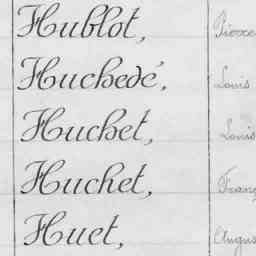 Hublot, Pierre
Huchedé, Louis
Huchet, Louis
Huchet,
Huet,